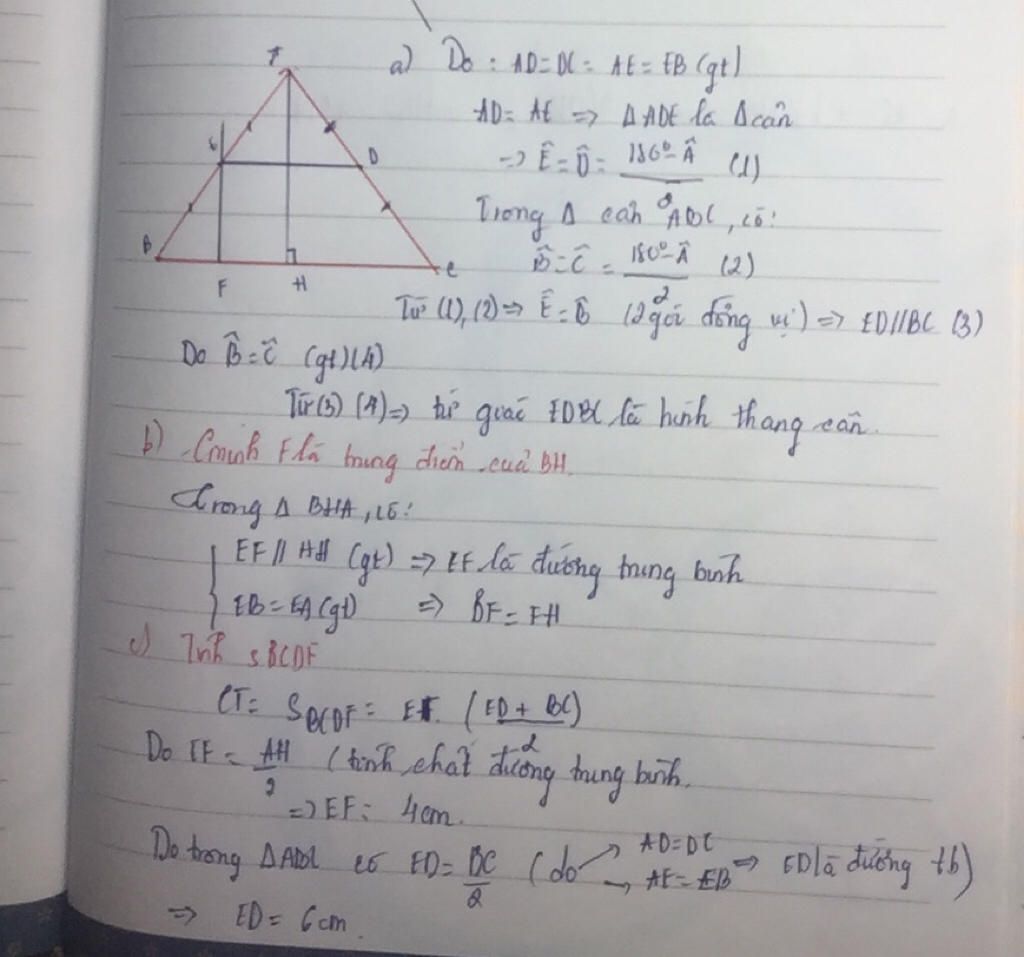 A
a) Do : AD=DC= AE= EB (gt)
AD= AE => Δ ADE là Δ cân
=> Ê = D̂ = 180° - Â / 2 (1)
E
D
Trong Δ cân ABC, có:
B
B̂ = Ĉ = 180° - Â / 2 (2)
C
F H
Từ (1), (2) => Ê = B̂ (2 góc đồng vị) => ED//BC (3)
Do B̂ = Ĉ (gt) (4)
Từ (3) (4) => tứ giác EDBC là hình thang cân.
b) Cminh F là trung điểm của BH.
Trong Δ BHA, có:
EF // AH (gt) => EF là đường trung bình
EB = EA (gt) => BF = FH
c) Tính SBCDE
CT= SBCDE = EF. (ED + BC) / 2
Do EF = AH / 2 (tính chất đường trung bình.
=> EF = 4cm.
Do trong Δ ABC có ED = BC / 2 (do → AD = DC → AE = EB => ED là đường tb)
=> ED = 6cm.